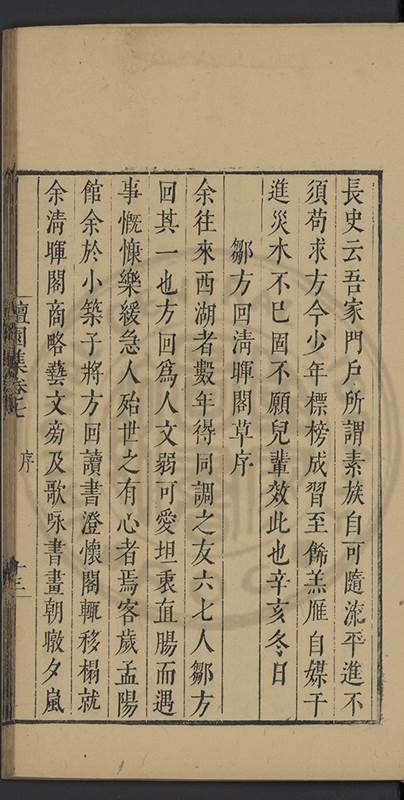 長史云吾家門戶所謂素族自可隨流平進不
須苟求方今少年標榜成習至餙羔雁自媒干
進災木不已固不願兒輩效此也辛亥冬日
鄒方回清暉閣草序
余往來西湖者數年得同調之友六七人鄒方
回其一也方回為人文弱可愛坦衷直腸而遇
事慨慷樂緩急人殆世之有心者焉客歲孟陽
館余於小築子將方回讀書澄懷閣輒移榻就
余清暉閣商略藝文旁及歌咏書畫朝暾夕嵐
檀園集卷七
序
十三